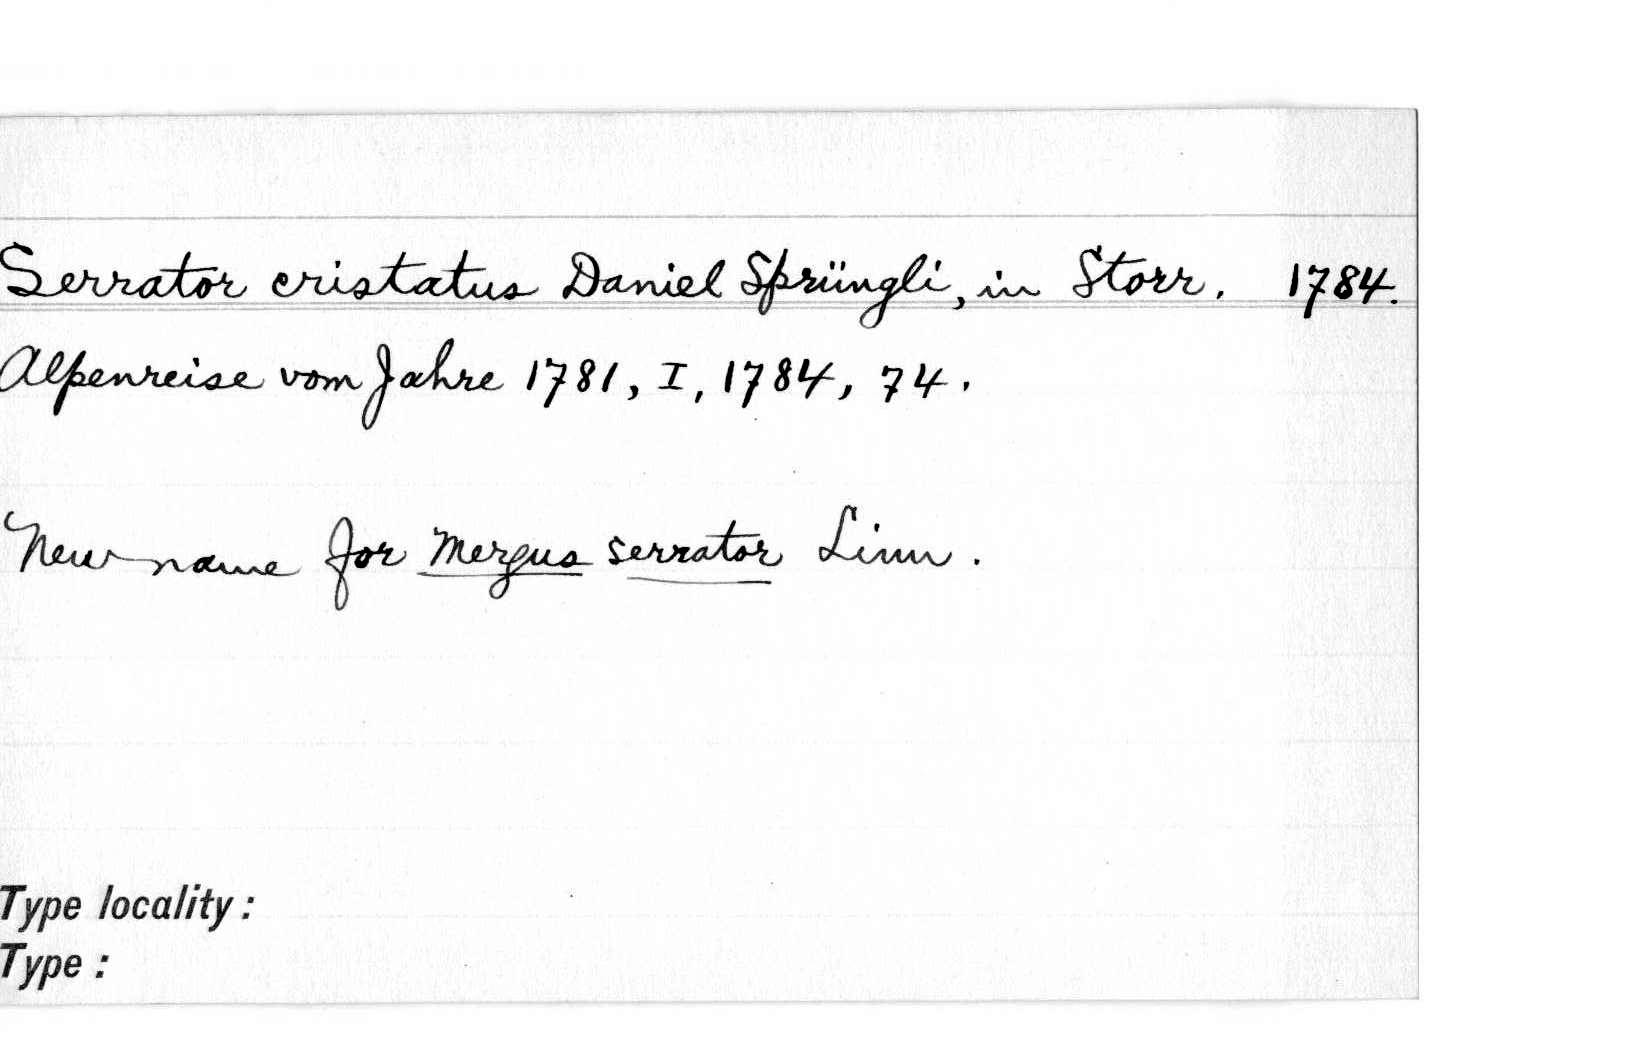 Serrator cristatus Daniel Sprüngli, in Storr. 1784.
Alpenreise vom Jahre 1781, I, 1784, 74.
New name for Mergus serrator Linn.
Type locality:
Type: